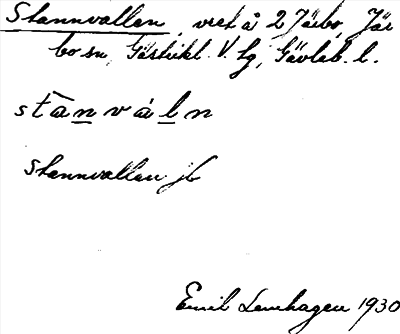 Stannvallen, vret å 2 Järbo, Jär
bo sn, Gästrikl. V. tg, Gävleb. l.
stānvàln
Stannvallen jb
Emil Lenhagen 1930